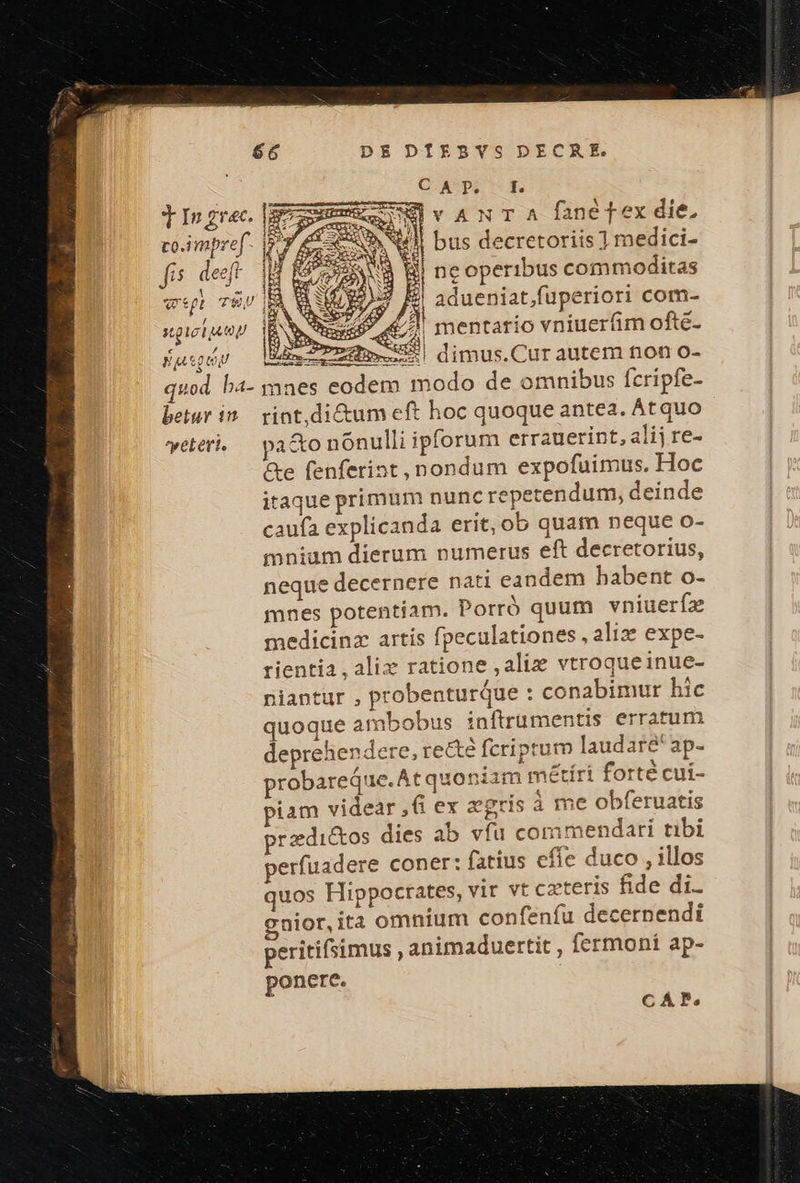 66 DE DIEBVS DECRE.
CAP. I.
† In græc.
co. impreſ-
ſis deeſt
περὶ τῶν
κρισίμων
ἡμερῶν
quod ha-
betur in
veteri.
QVANTA ſanè † ex die-
bus decretoriis] medici-
ne operibus commoditas
adueniat, ſuperiori com-
mentario vniuerſim oſtē-
dimus. Cur autem non o-
mnes eodem modo de omnibus ſcripſe-
rint, dictum eſt hoc quoque antea. At quo
pacto nōnulli ipſorum errauerint, alij re-
cte ſenſerint, nondum expoſuimus. Hoc
itaque primum nunc repetendum, deinde
cauſa explicanda erit, ob quam neque o-
mnium dierum numerus eſt decretorius,
neque decernere nati eandem habent o-
mnes potentiam. Porrò quum vniuerſæ
medicinæ artis ſpeculationes, aliæ expe-
rientia, aliæ ratione, aliæ vtroque inue-
niantur, probenturq́ue: conabimur hic
quoque ambobus inſtrumentis erratum
deprehendere, rectè ſcriptum laudare ap-
probareq́ue. At quoniam mētiri fortè cui-
piam videar, ſi ex ægris à me obſeruatis
prædictos dies ab vſu commendari tibi
perſuadere coner: ſatius eſſe duco, illos
quos Hippocrates, vir vt cæteris fide di-
gnior, ita omnium conſenſu decernendi
peritiſsimus, animaduertit, ſermoni ap-
ponere.
CAP.